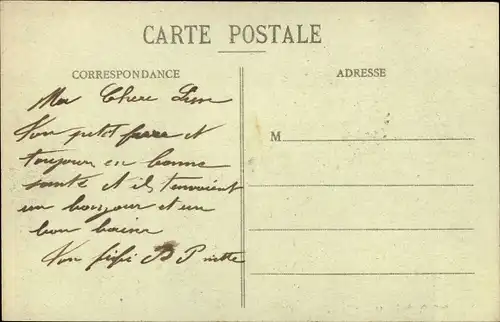 CARTE POSTALE
CORRESPONDANCE
ADRESSE
Ma Chere
Ton petit frere et
toujour en bonne
santé et ils t'envoient
un bonjour et un
bon baiser
Ton fifi B P
M